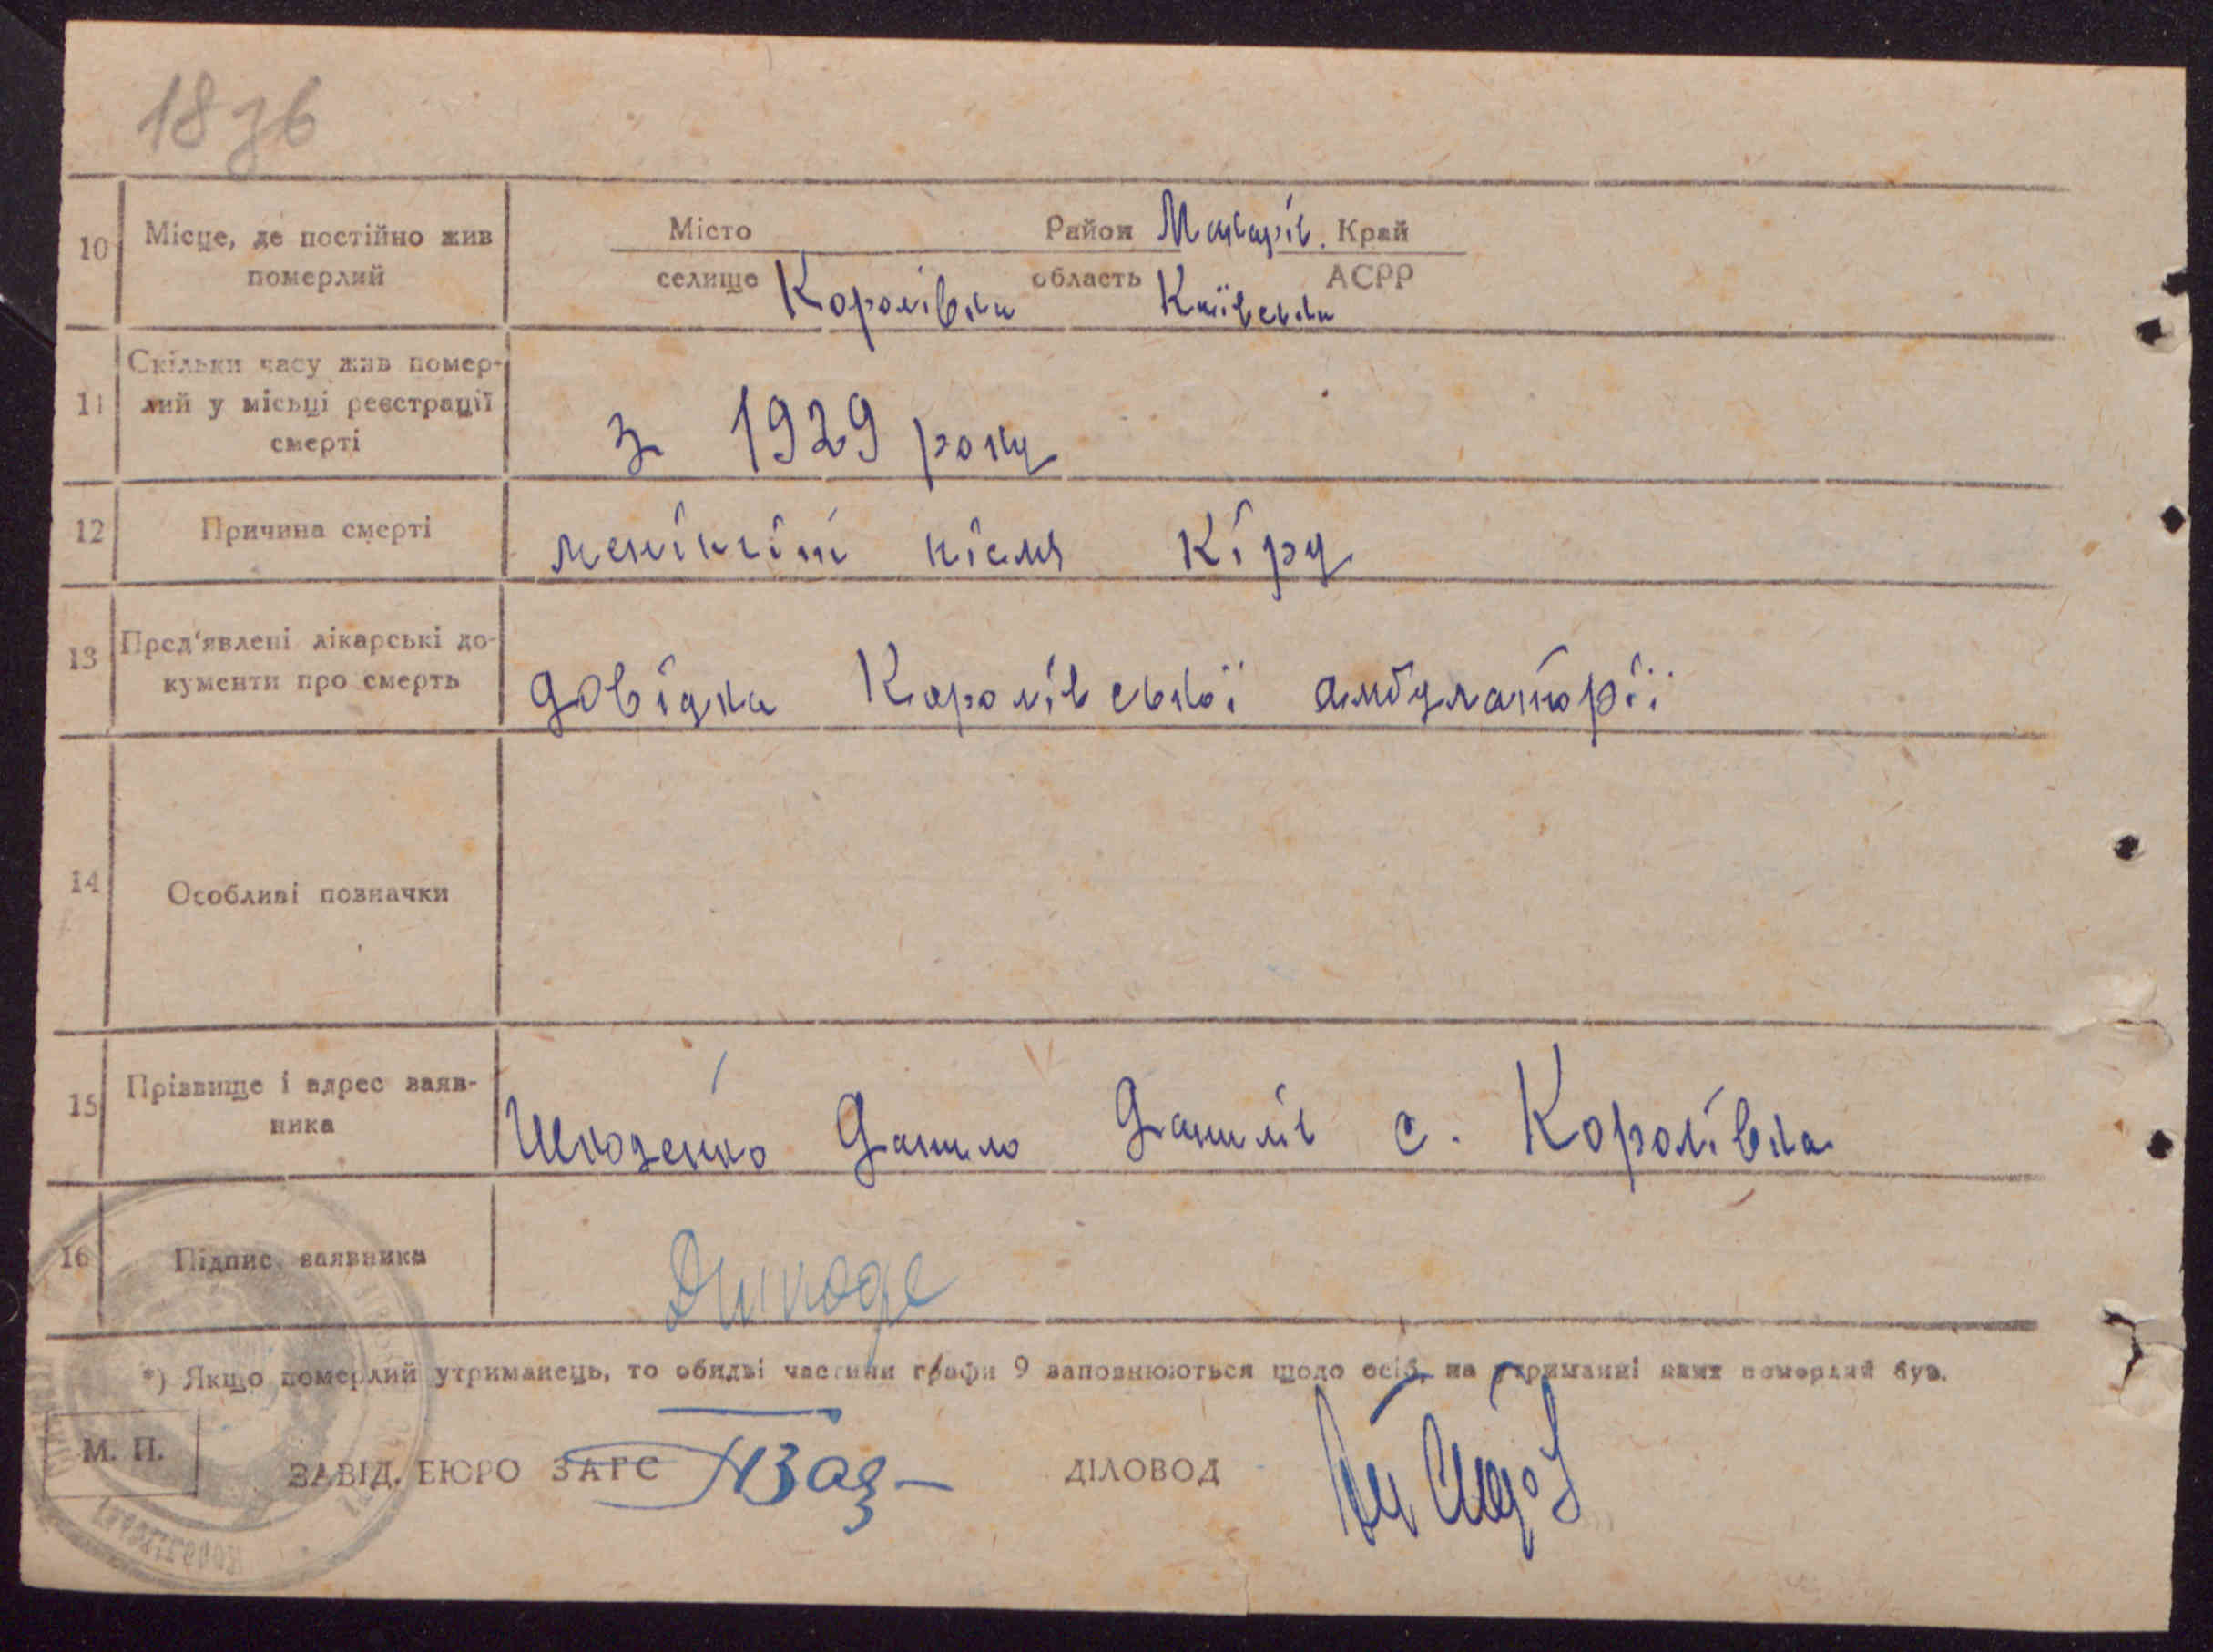 18зв
10 Місце, де постійно жив померлий
Місто Район Макарів. Край
селище Королівка область Київська АСРР
11 Скільки часу жив померлий у місьці реєстрації смерті
з 1929 року
12 Причина смерті
менінгіт після кіру
13 Пред'явлені лікарські документи про смерть
довідка Королівської амбулаторії
14 Особливі позначки
15 Прізвище і адрес заявника
Данило Данилів с. Королівка
16 Підпис заявника
*) Якщо померлий утриманець, то обидві частини графи 9 заповнюються щодо осіб, на утриманні яких померлий був.
М. П.
ЗАВІД. БЮРО ЗАГС ДІЛОВОД